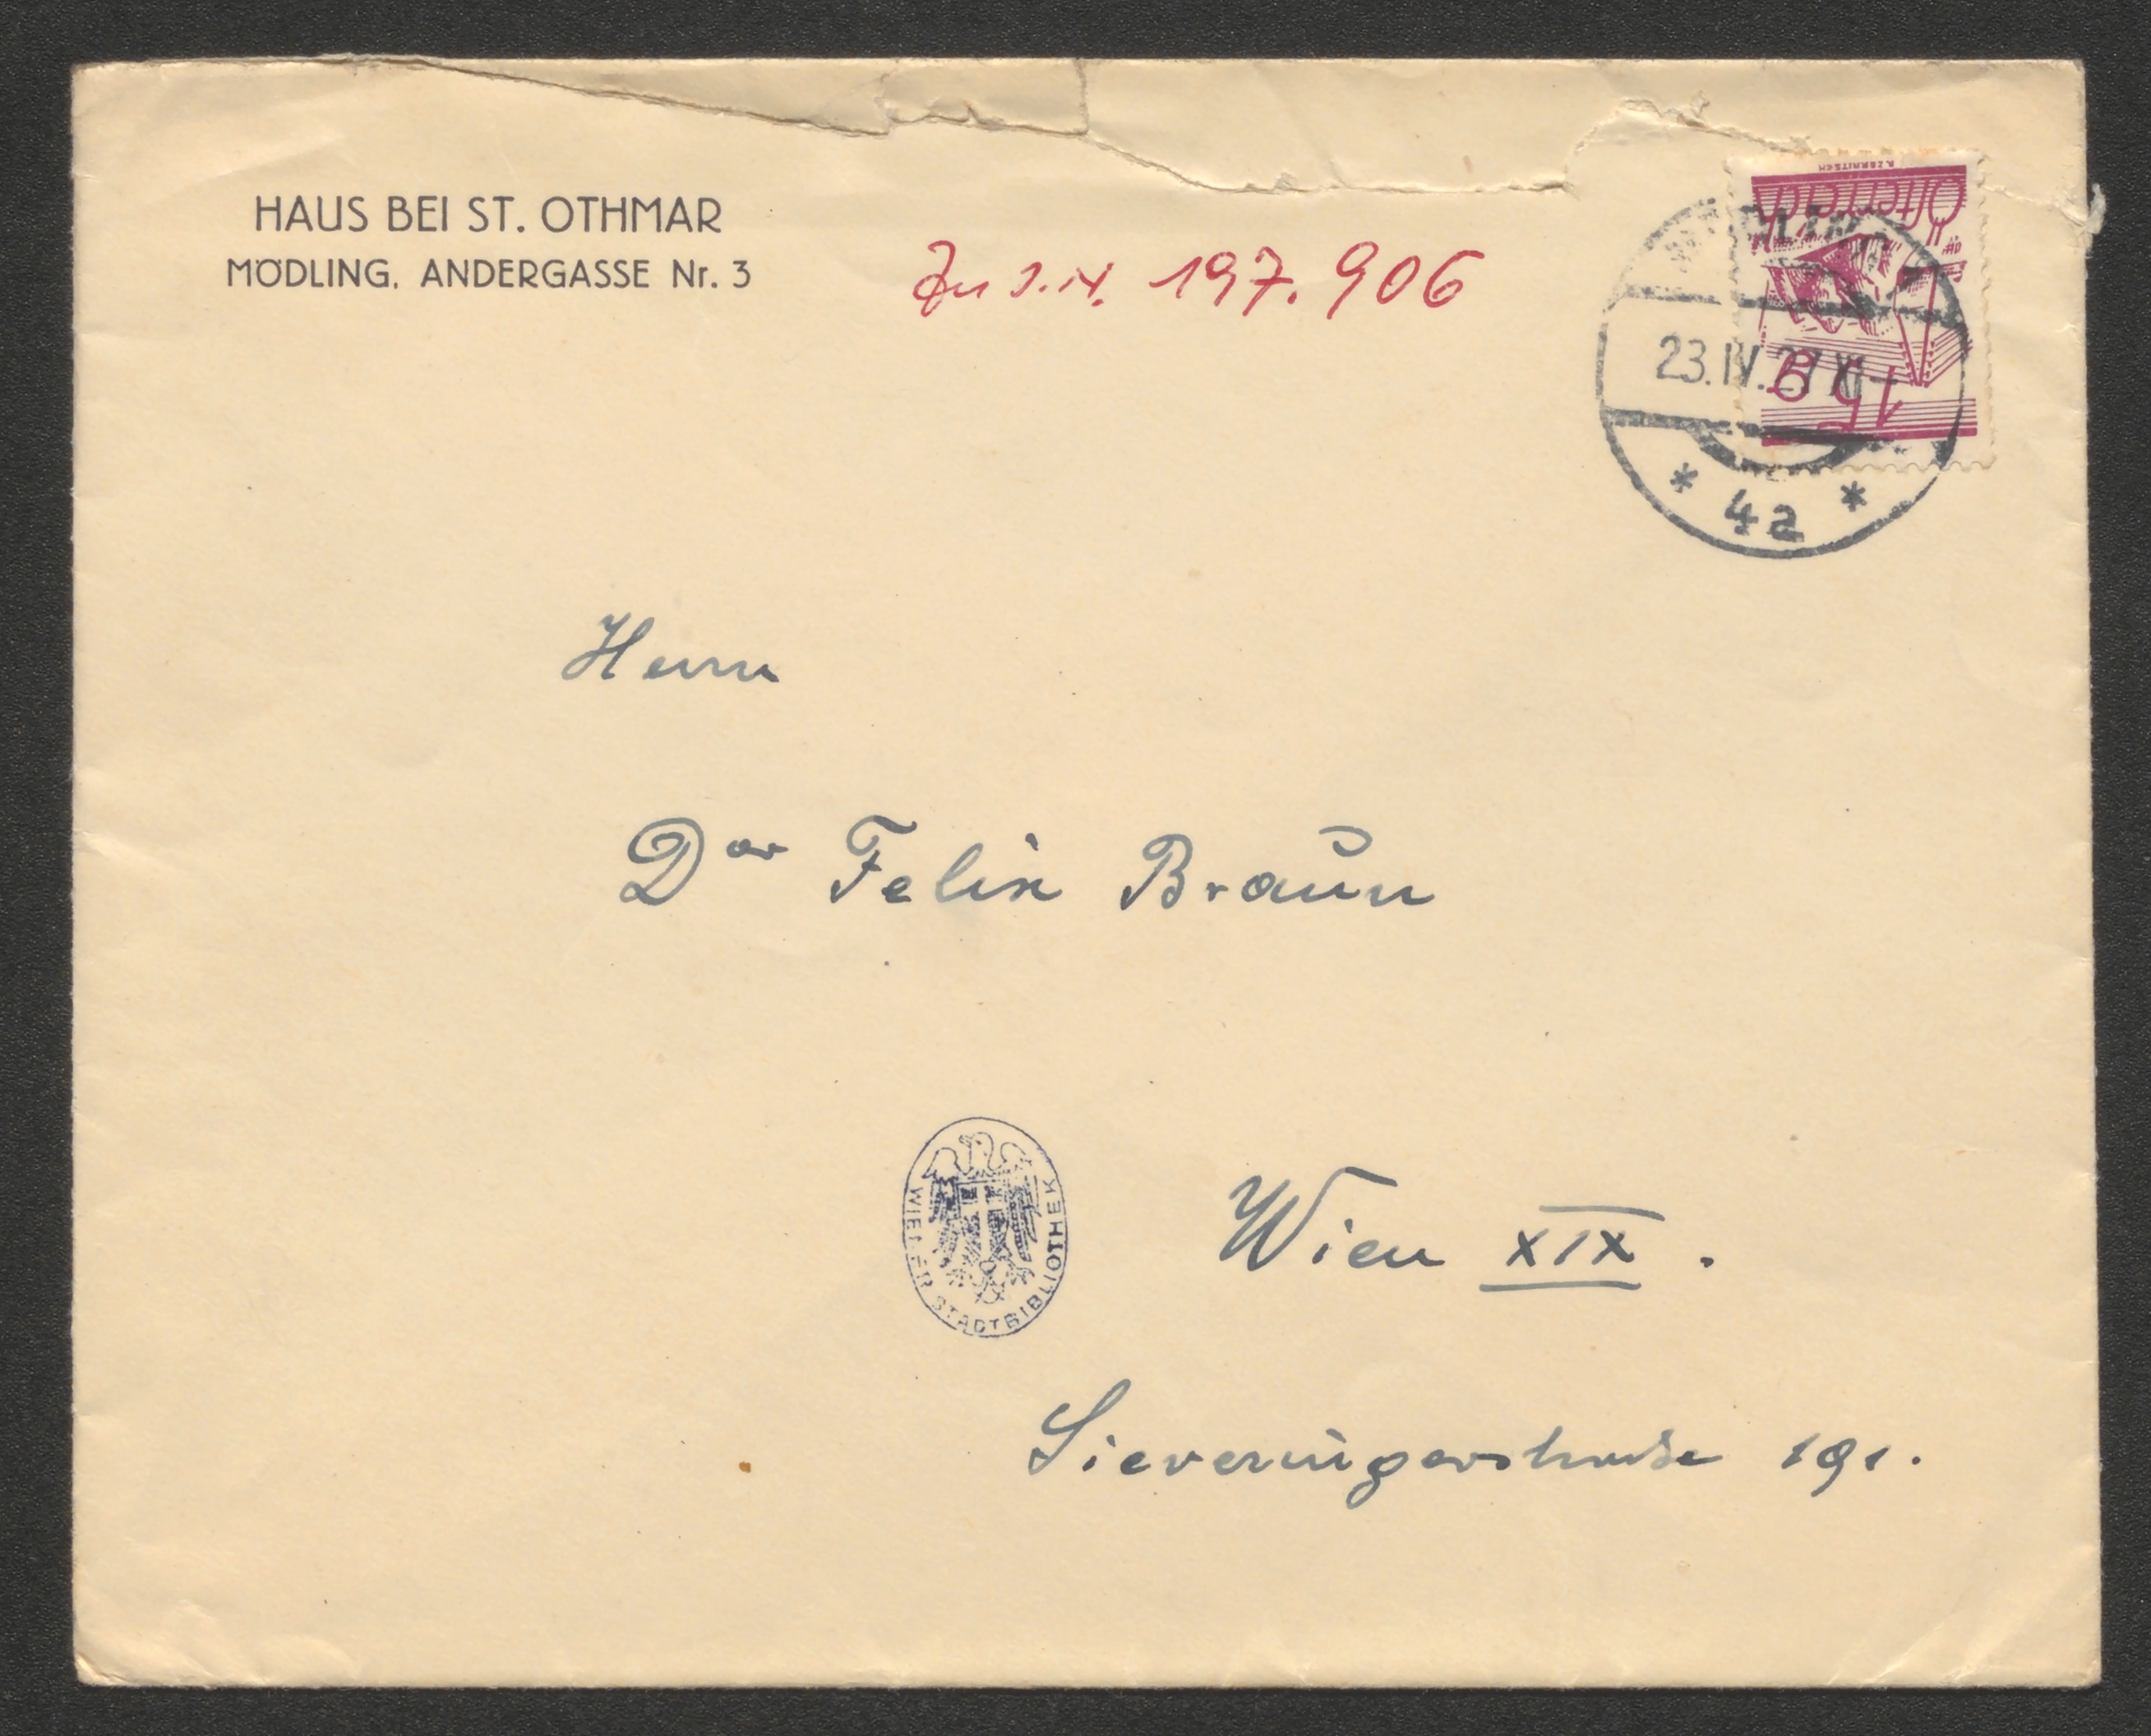 HAUS BEI ST. OTHMAR
MÖDLING, ANDERGASSE Nr. 3
Zu I.N. 197.906
Österreich
15 g
23.IV.27
* 4a *
Herrn
Dor Felix Braun
WIENER STADTBIBLIOTHEK
Wien XIX.
Sieveringerstraße 191.